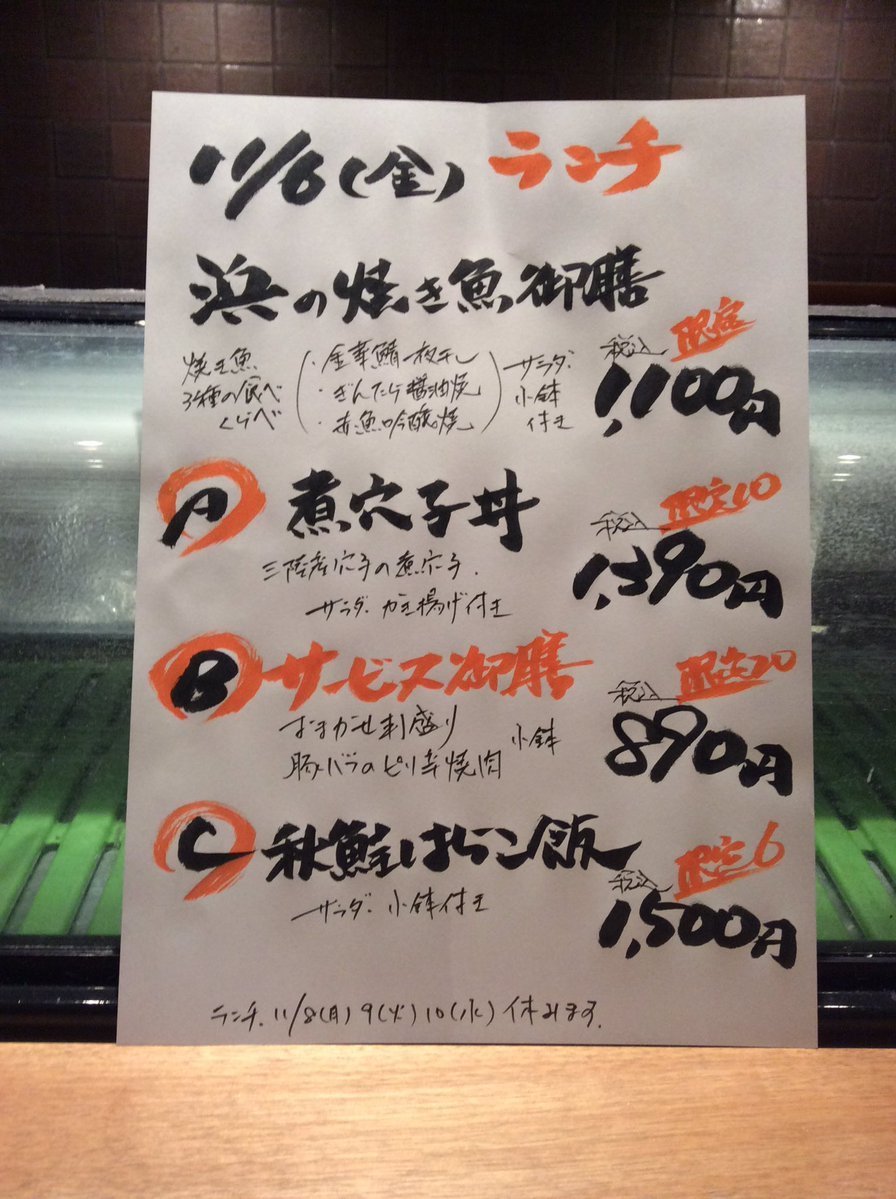 11/6(金) ランチ
浜の焼き魚御膳
限定
焼き魚
3種の食べ
くらべ
・金華鯖一夜干し
・ぎんだら醤油焼
・赤魚吟醸焼
サラダ
小鉢
付き
税込
1,100円
A 煮穴子丼
限定10
三陸産穴子の煮穴子
サラダ、かき揚げ付き
税込
1,390円
B サービス御膳
限定20
おまかせ刺盛り
豚バラのピリ辛焼肉
小鉢
税込
890円
C 秋鮭はらこ飯
限定6
サラダ、小鉢付き
税込
1,500円
ランチ、11/8(月)9(火)10(水)休みます。